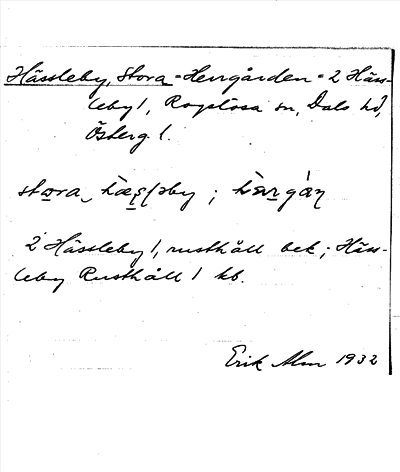 Hässleby, Stora = Herrgården = 2 Häss-
leby 1, Rogslösa sn, Dals hd,
Österg. l.
stora hæs̨ləby ; hærgán
2 Hässleby 1, rusthåll bek; Häss-
leby Rusthåll 1 kb.
Erik Alm 1932